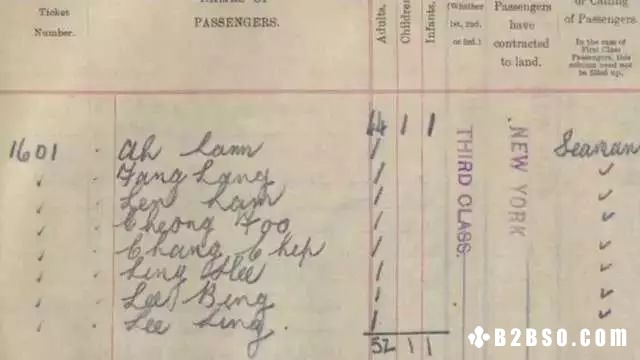 Ticket Number.
PASSENGERS.
Adults.
Children
Infants.
(Whether 1st, 2nd, or 3rd.)
Passengers have contracted to land.
or Calling of Passengers.
In the case of First Class Passengers, this column need not be filled up.
44 1 1
1601 Ah Lam / Seaman
Fang Lang /
Len Lam /
Cheong Foo /
Chang Chip /
Ling Hee /
Lee Bing /
Lee Ling. /
52 1 1
THIRD CLASS.
NEW YORK
B2BSO.COM